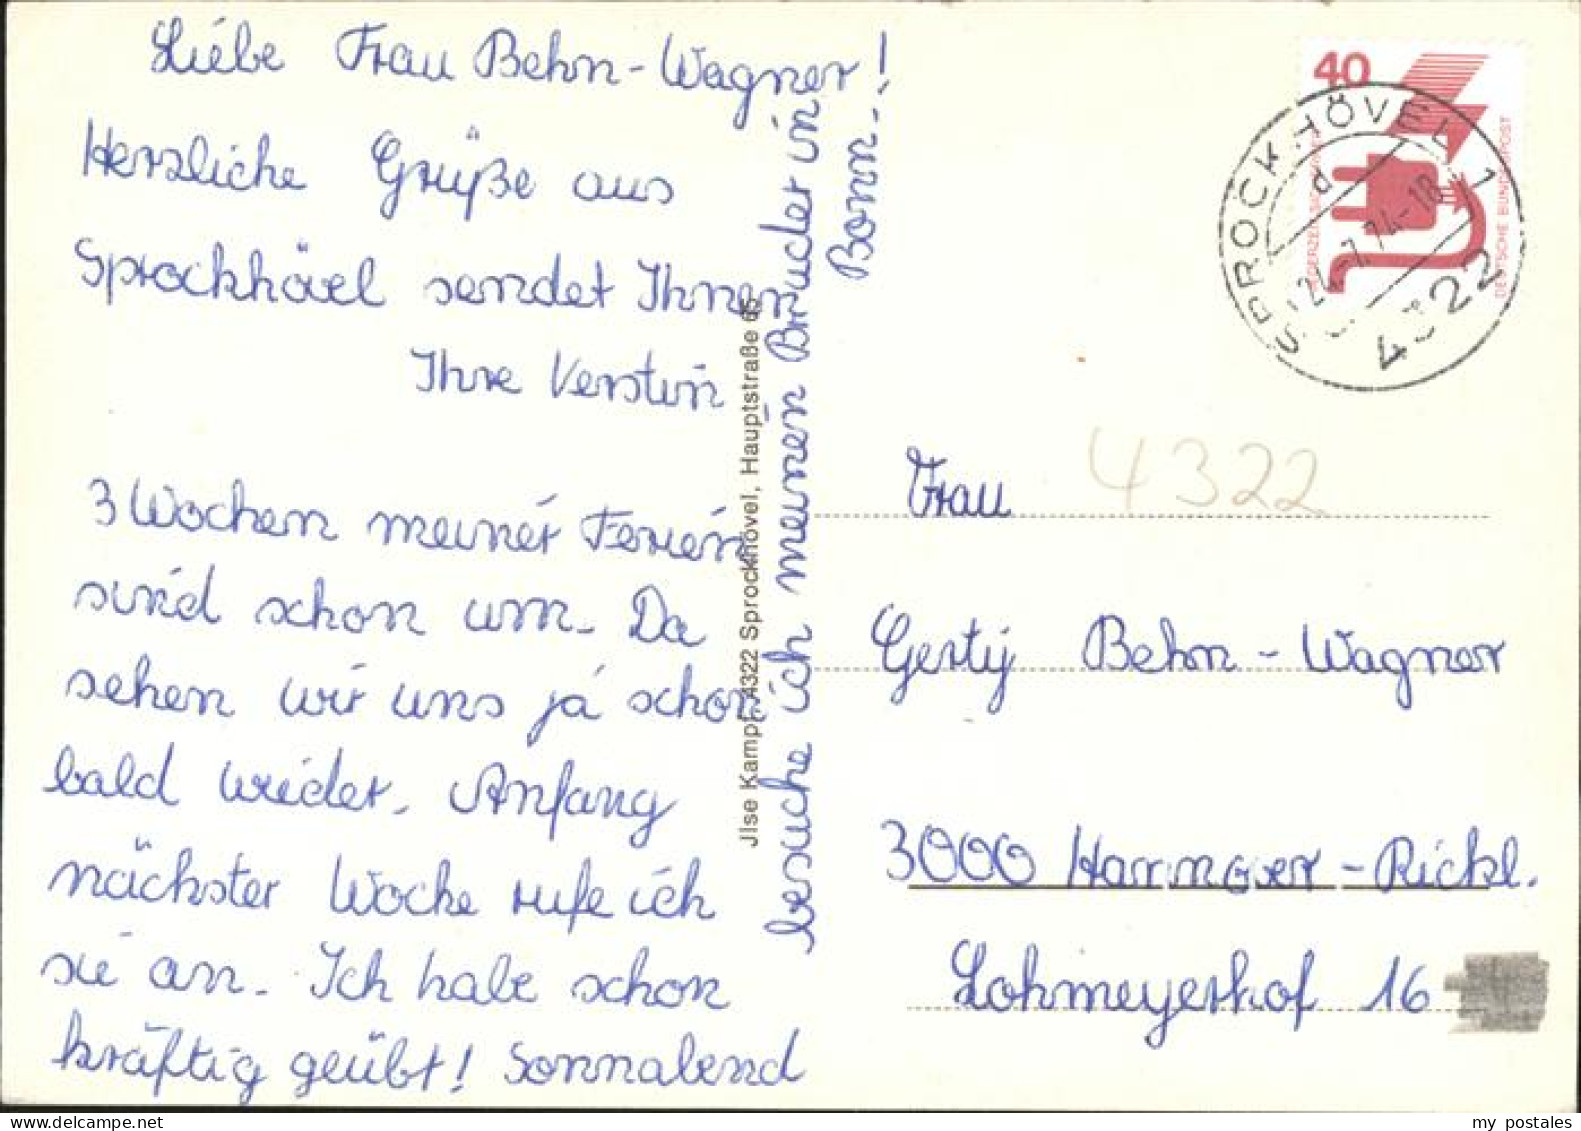 Liebe Frau Behn-Wagner!
Herzliche Grüße aus
Sprockhövel sendet Ihnen
Ihre Kerstin
3 Wochen meiner Ferien
sind schon um. Da
sehen wir uns ja schon
bald wieder. Anfang
nächster Woche rufe ich
sie an. Ich habe schon
kräftig geübt! Sonnabend
besuche ich meinen Bruder in
Bonn.
Jlse Kampf, 4322 Sprockhövel, Hauptstraße 65
40
DEUTSCHE BUNDESPOST
JEDERZEIT SICHERHEIT
SPROCKHÖVEL 1
d
4322
4322
Frau
Gerty Behn-Wagner
3000 Hannover-Rickl.
Lohmeyerhof 16
my postales